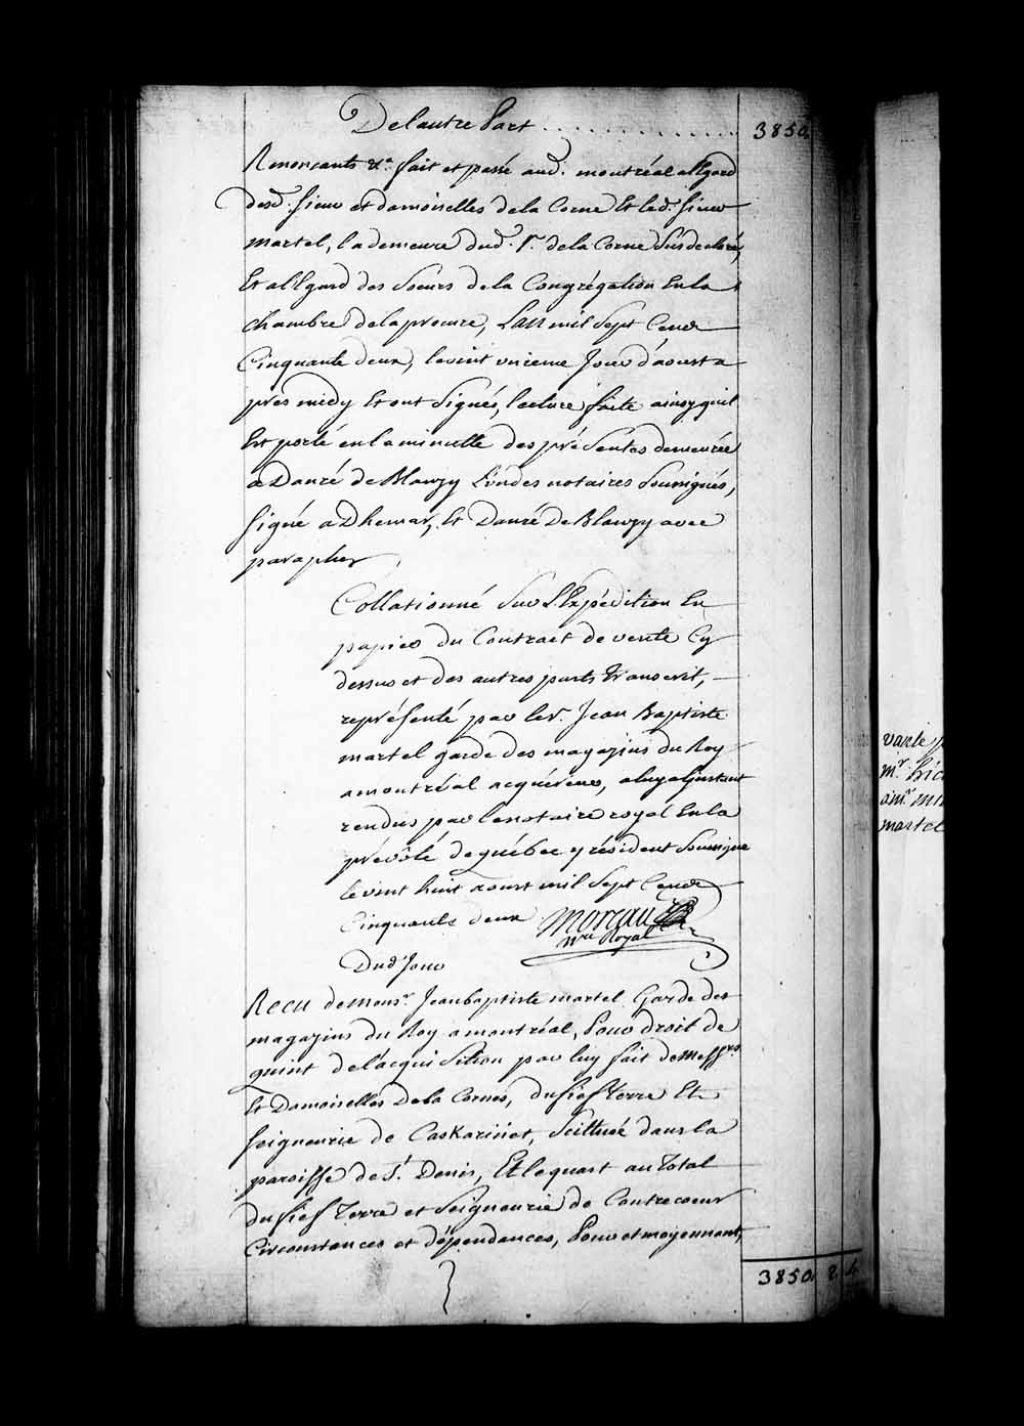 De lautre Part . . . . . . . . . . . . . 3850
Renoncants &a. fait et passé aud. montréal a l'Egard
desd. sieur et damoiselles de la Corne Et led. sieur
martel, la demeure dud. Sr. de la Corne Susdeclaré,
Et a l'Egard des Soeurs de la Congrégation En la
chambre de la procure, L'an mil Sept Cens
Cinquante deux, le vint unieme Jour d'aoust a
près midy Et ont Signés, lecture faite ainsy qu'il
Est porté en la minutte des présentes demeurée
a Danré de Blanzy L'un des notaires Soussignés,
Signé aDhemar, Et Danré De Blanzy avec
paraphes
Collationné Sur L'Expédition En
papier du Contract de vente Cy
dessus et des autres parts transcrit,
représenté par le Sr. Jean Baptiste
martel garde des magazins du Roy
a montréal acquéreur, a luy a l'instant
rendus par le notaire royal En la
prévôté de québec y résident Soussigné
le vint huit aoust mil Sept Cens
Cinquante deux Moreau
nre Royal
Dud Jour
Recu de Monsr. Jean baptiste martel Garde des
magazins du Roy a montréal, Pour droit de
quint de l'acquisition par luy fait de Messrs
Et Damoiselles De la Cornes, du fief terre Et
seigneurie de Caskarinet, Scittuée dans la
paroisse de St. Denis, Et le quart au Total
du fief Terre et Seigneurie de Contrecoeur
Circonstances et dépendances, Pour et moyennant,
3850 2 4
vante
mr.
martel